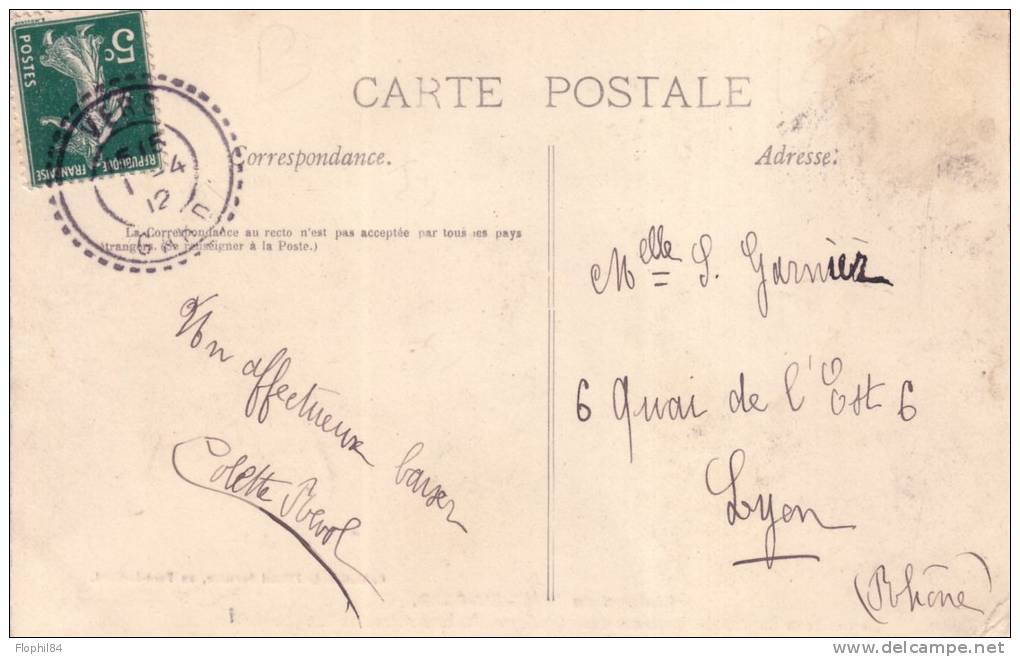 5c
POSTES
RÉPUBLIQUE FRANÇAISE
VERS
15
1 -4
12
GARD
CARTE POSTALE
Correspondance.
Adresse:
La Correspondance au recto n'est pas acceptée par tous les pays
étrangers. (Se renseigner à la Poste.)
Un affectueux baiser
Colette
Melle S. Garnier
6 Quai de l'Est 6
Lyon
(Rhône)
Flophil84
delcampe.net